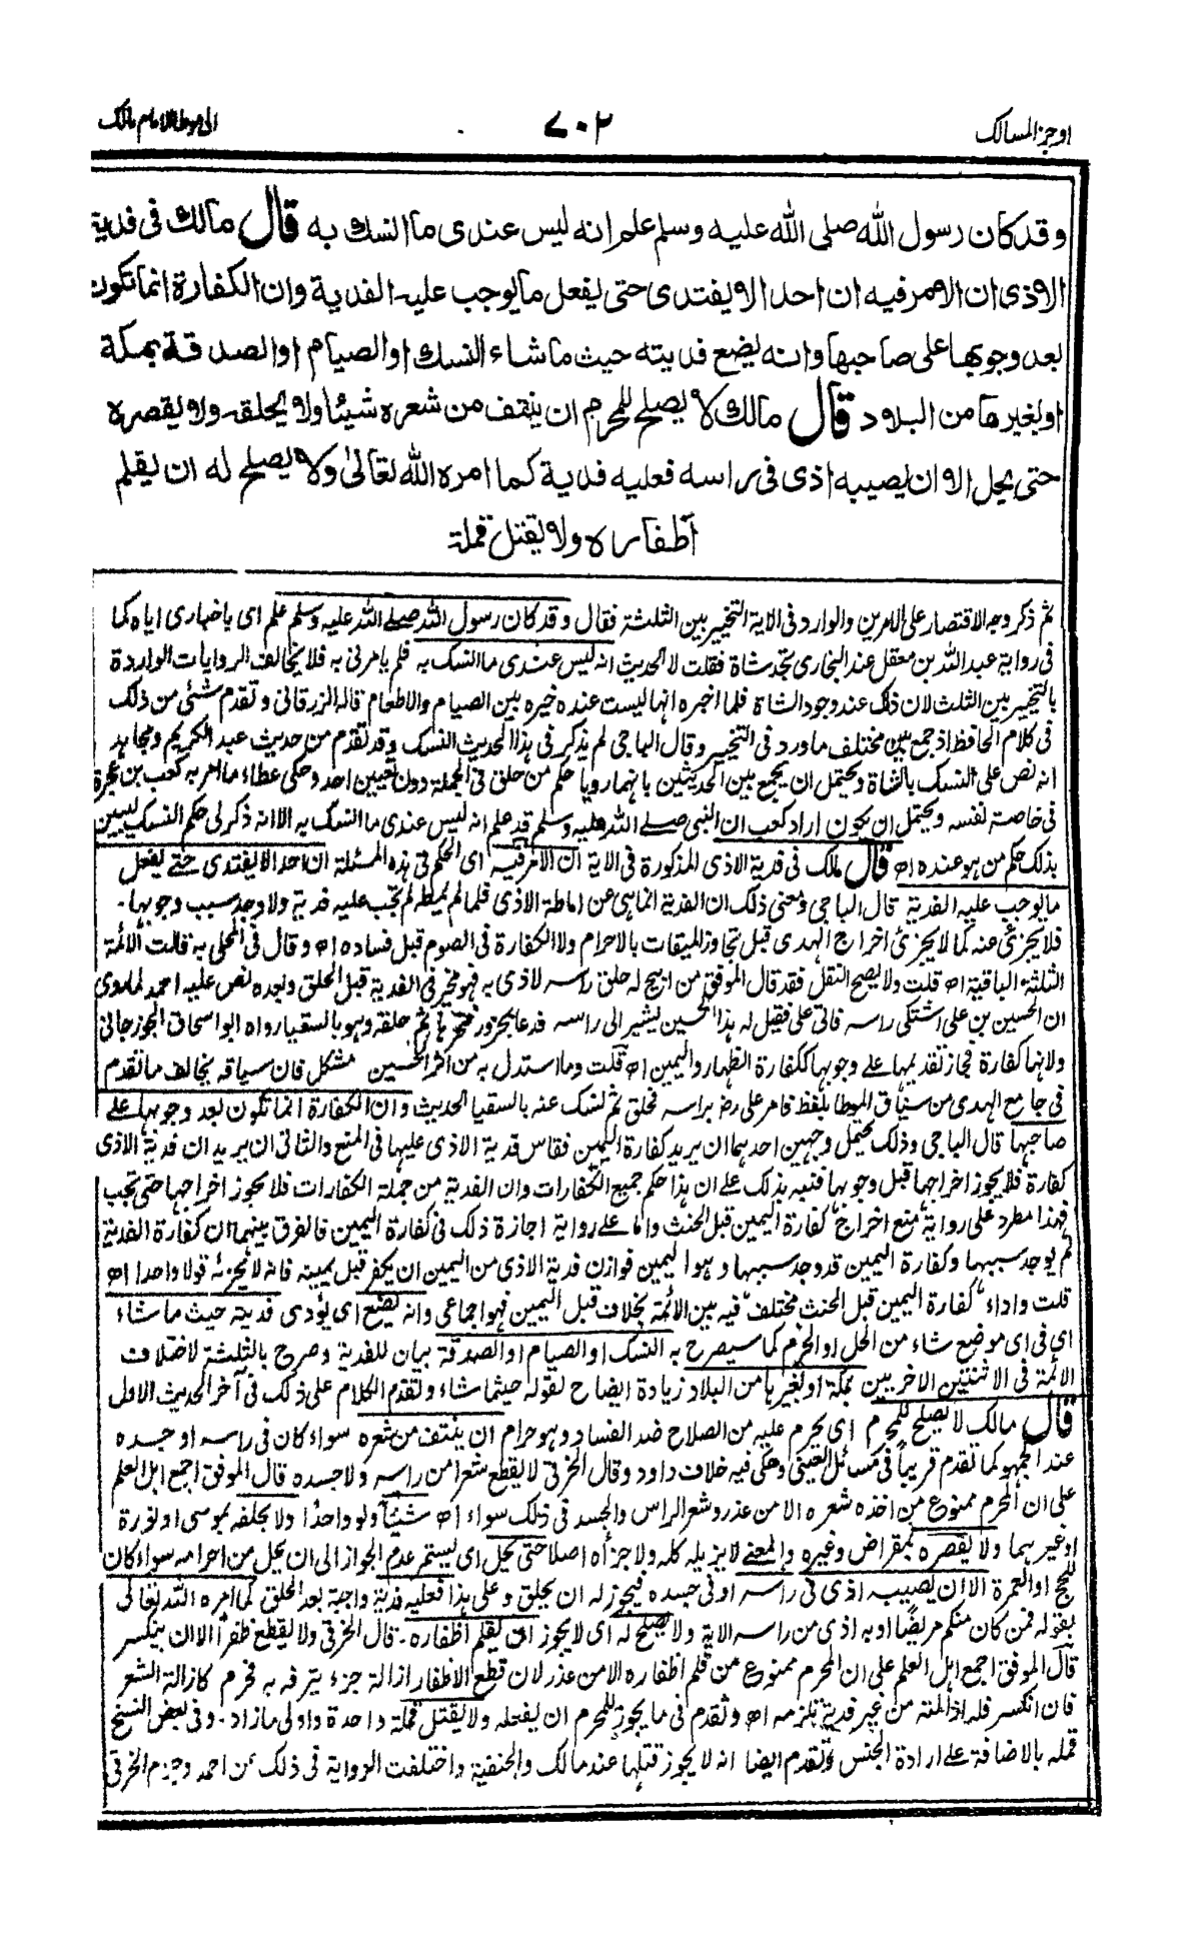 اوجز المسالك
٧٠٢
الى موطا الامام مالك
وقد كان رسول الله صلى الله عليه وسلم علم انه ليس عندى ما انسك به قال مالك فى فدية
الاذى ان الامر فيه ان احدا لا يفتدى حتى يفعل ما يوجب عليه الفدية وان الكفارة انما تكون
بعد وجوبها على صاحبها وانه يضع فديته حيث ما شاء النسك او الصيام او الصدقة بمكة
او بغيرها من البلاد قال مالك لا يصلح للمحرم ان ينتف من شعره شيئا ولا يحلقه ولا يقصره
حتى يحل الا ان يصيبه اذى فى راسه فعليه فدية كما امره الله تعالىٰ ولا يصلح له ان يقلم
اظفاره ولا يقتل قملة
ثم ذكر وجه الاقتصار على الامرين والوارد فى الاية التخيير بين الثلثة فقال وقد كان رسول الله صلے الله عليه وسلم علم اى باخبارى اياه كما
فى رواية عبد الله بن معقل عند البخارى تجد شاة فقلت لا الحديث انه ليس عندى ما انسك به فلم يامرنى به فلا يخالف الروايات الواردة
بالتخيير بين الثلث لان ذلك عند وجود الشاة فلما اخبره انها ليست عنده خيره بين الصيام والاطعام قاله الزرقانى وتقدم شئى من ذلك
فى كلام الحافظ اذ جمع بين مختلف ما ورد فى التخيير وقال الباجى لم يذكر فى هذا الحديث النسك وقد تقدم من حديث عبد الكريم ومجاهد
انه نص على النسك بالشاة ويحتمل ان يجمع بين الحديثين بانهما رويا حكم من حلق فى الجملة دون تعيين احد وحكى عطاء ما امر به كعب بن عجرة
فى خاصة نفسه ويحتمل ان يكون اراد كعب ان النبى صلے الله عليه وسلم قد علم انه ليس عندى ما انسك به الا انه ذكر لى حكم النسك ليبين
بذلك حكم من هو عنده اھ قال مالك فى فدية الاذى المذكورة فى الاية ان الامر فيه اى الحكم فى هذه المسئلة ان احدا لا يفتدى حتے يفعل
ما يوجب عليه الفدية قال الباجى ومعنى ذلك ان الفدية انما هى عن اماطة الاذى فلما لم يمطه لم تجب عليه فدية ولا وجد سبب وجوبها۔
فلا يجزئ عنه كما لا يجزئ اخراج الهدى قبل تجاوز الميقات بالاحرام ولا الكفارة فى الصوم قبل فساده اھ وقال فى المحلى به قالت الائمة
الثلثة الباقية اھ قلت ولا يصح النقل فقد قال الموفق من ابيح له حلق راسه لاذى به فهو مخير فى الفدية قبل الحلق وبعده نص عليه احمد لما روى
ان الحسين بن على اشتكى راسه فاتى على فقيل له هذا الحسين يشير الى راسه فدعا بجزور فنحرها ثم حلقه وهو بالسقيا رواه ابو اسحاق الجوزجانى
ولانها كفارة فجاز تقديمها علے وجوبها ككفارة الظهار واليمين اھ قلت وما استدل به من اثر الحسين مشكل فان سياقه يخالف ما تقدم
فى جامع الهدى من سياق الموطا بلفظ فامر على رض براسه فحلق ثم نسك عنه بالسقيا الحديث وان الكفارة انما تكون بعد وجوبها علے
صاحبها قال الباجى وذلك يحتمل وجهين احدهما ان يريد كفارة اليمين فقاس فدية الاذى عليها فى المنع والثانى ان يريد ان فدية الاذى
كفارة فلا يجوز اخراجها قبل وجوبها فنبه بذلك علے ان هذا حكم جميع الكفارات وان الفدية من جملة الكفارات فلا يجوز اخراجها حتى تجب
فهذا مطرد على رواية منع اخراج كفارة اليمين قبل الحنث واما علے رواية اجازة ذلك فى كفارة اليمين فالفرق بينهما ان كفارة الفدية
لم يوجد سببها وكفارة اليمين قد وجد سببها وهو اليمين فوازن فدية الاذى من اليمين ان يكفر قبل يمينه فانه لا يجزئه قولا واحدا اھ
قلت واداء كفارة اليمين قبل الحنث مختلف فيه بين الائمة بخلاف قبل اليمين فهو اجماعى وانه يضع اى يؤدى فديته حيث ما شاء
اى فى اى موضع شاء من الحل او الحرم كما سيصرح به النسك او الصيام او الصدقة بيان للفدية وصرح بالثلثة لاختلاف
الائمة فى الاثنتين الاخريين بمكة او بغيرها من البلاد زيادة ايضاح لقوله حيثما شاء وتقدم الكلام على ذلك فى آخر الحديث الاول
قال مالك لا يصلح للمحرم اى يحرم عليه من الصلاح ضد الفساد وهو حرام ان ينتف من شعره سواء كان فى راسه او جسده
عند الجمهور كما تقدم قريباً فى مسائل العينى وحكى فيه خلاف داود وقال الخرقى لا يقطع شعرا من راسه ولا جسده قال الموفق اجمع اهل العلم
على ان المحرم ممنوع من اخذ شعره الا من عذر وشعر الراس والجسد فى ذلك سواء اھ شيئاً ولو واحداً ولا يحلقه بموسى او نورة
او غيرهما ولا يقصره بمقراض وغيره والمعنے لا يزيله كله ولا جزأه اصلا حتى يحل اى يستمر عدم الجواز الى ان يحل من احرامه سواء كان
للحج او العمرة الا ان يصيبه اذى فى راسه او فى جسده فيجوز له ان يحلق وعلى هذا فعليه فدية واجبة بعد الحلق كما امره الله تعالى
بقوله فمن كان منكم مريضًا او به اذى من راسه الاية ولا يصلح له اى لا يجوز ان يقلم اظفاره۔ قال الخرقى ولا يقطع ظفراً الا ان ينكسر
قال الموفق اجمع اهل العلم على ان المحرم ممنوع من قلم اظفاره الا من عذر لان قطع الاظفار ازالة جزء يترفه به فحرم كازالة الشعر
فان انكسر فله ازالته من غير فدية تلزمه اھ وتقدم فى ما يجوز للمحرم ان يفعله ولا يقتل قملة واحدة واولى ما زاد۔ وفى بعض النسخ
قمله بالاضافة علے ارادة الجنس وتقدم ايضا انه لا يجوز قتلها عند مالك والحنفية واختلفت الرواية فى ذلك عن احمد وجزم الخرقى